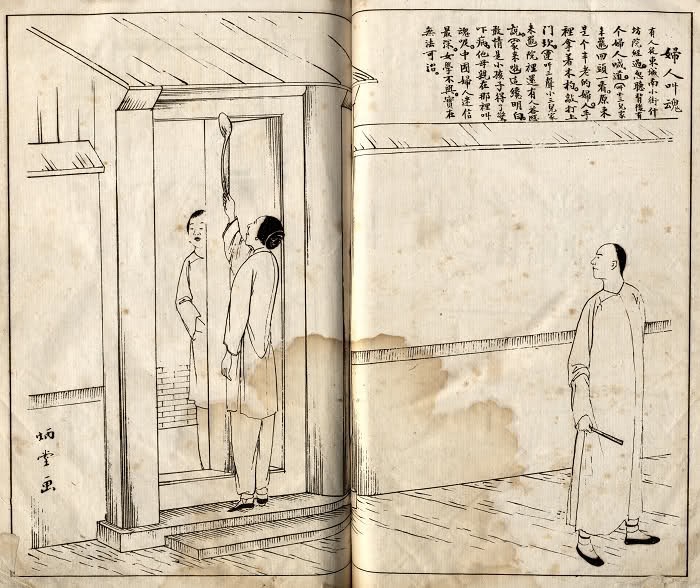 婦人叫魂
有人從東城南小街什
坊院經過忽聽背後有
个婦人喊道小三兒家
来罷回頭一看。原来
是个半老的婦人。手
裡拿着木杓。敲打上
門坎。連叫三聲小三兒家
来罷。院裡還有人答應
說。家来啦這纔明白。
敢情是小孩子得了驚
吓病。他母親在那裡叫
魂哎。中國婦人迷信
最深。女學不興。實在
無法可治。
炳堂画